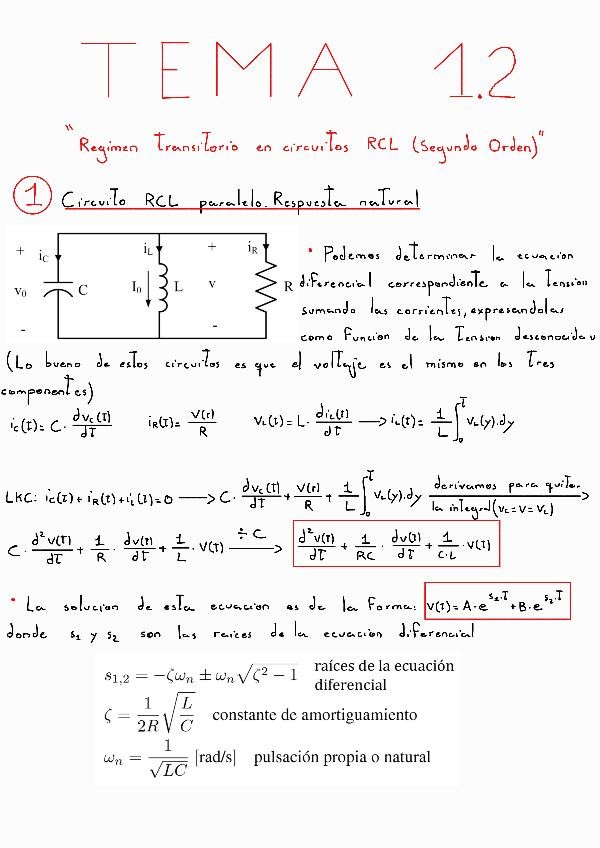 TEMA 1.2
"Regimen transitorio en circuitos RCL (Segundo Orden)"
1 Circuito RCL paralelo. Respuesta natural
+ iC iL + iR
v0 C I0 L v R
- -
• Podemos determinar la ecuacion
diferencial correspondiente a la tension
sumando las corrientes, expresandolas
como funcion de la tension desconocida v
(Lo bueno de estos circuitos es que el voltaje es el mismo en los tres
componentes)
ic(t) = C · dvc(t)/dt   iR(t) = v(t)/R   vL(t) = L · diL(t)/dt → iL(t) = 1/L ∫₀ᵗ vL(y).dy
LKC: ic(t) + iR(t) + iL(t) = 0 → C · dvc(t)/dt + v(t)/R + 1/L ∫₀ᵗ vL(y).dy derivamos para quitar la integral (vc = v = vL) →
C · d²v(t)/dt + 1/R · dv(t)/dt + 1/L · v(t) ÷ C → d²v(t)/dt + 1/RC · dv(t)/dt + 1/C·L · v(t)
• La solucion de esta ecuacion es de la forma: v(t) = A·e^s1·t + B·e^s2·t
donde s1 y s2 son las raices de la ecuacion diferencial
s1,2 = −ζωn ± ωn√ζ² − 1 raíces de la ecuación
diferencial
ζ = 1/2R √L/C constante de amortiguamiento
ωn = 1/√LC [rad/s] pulsación propia o natural